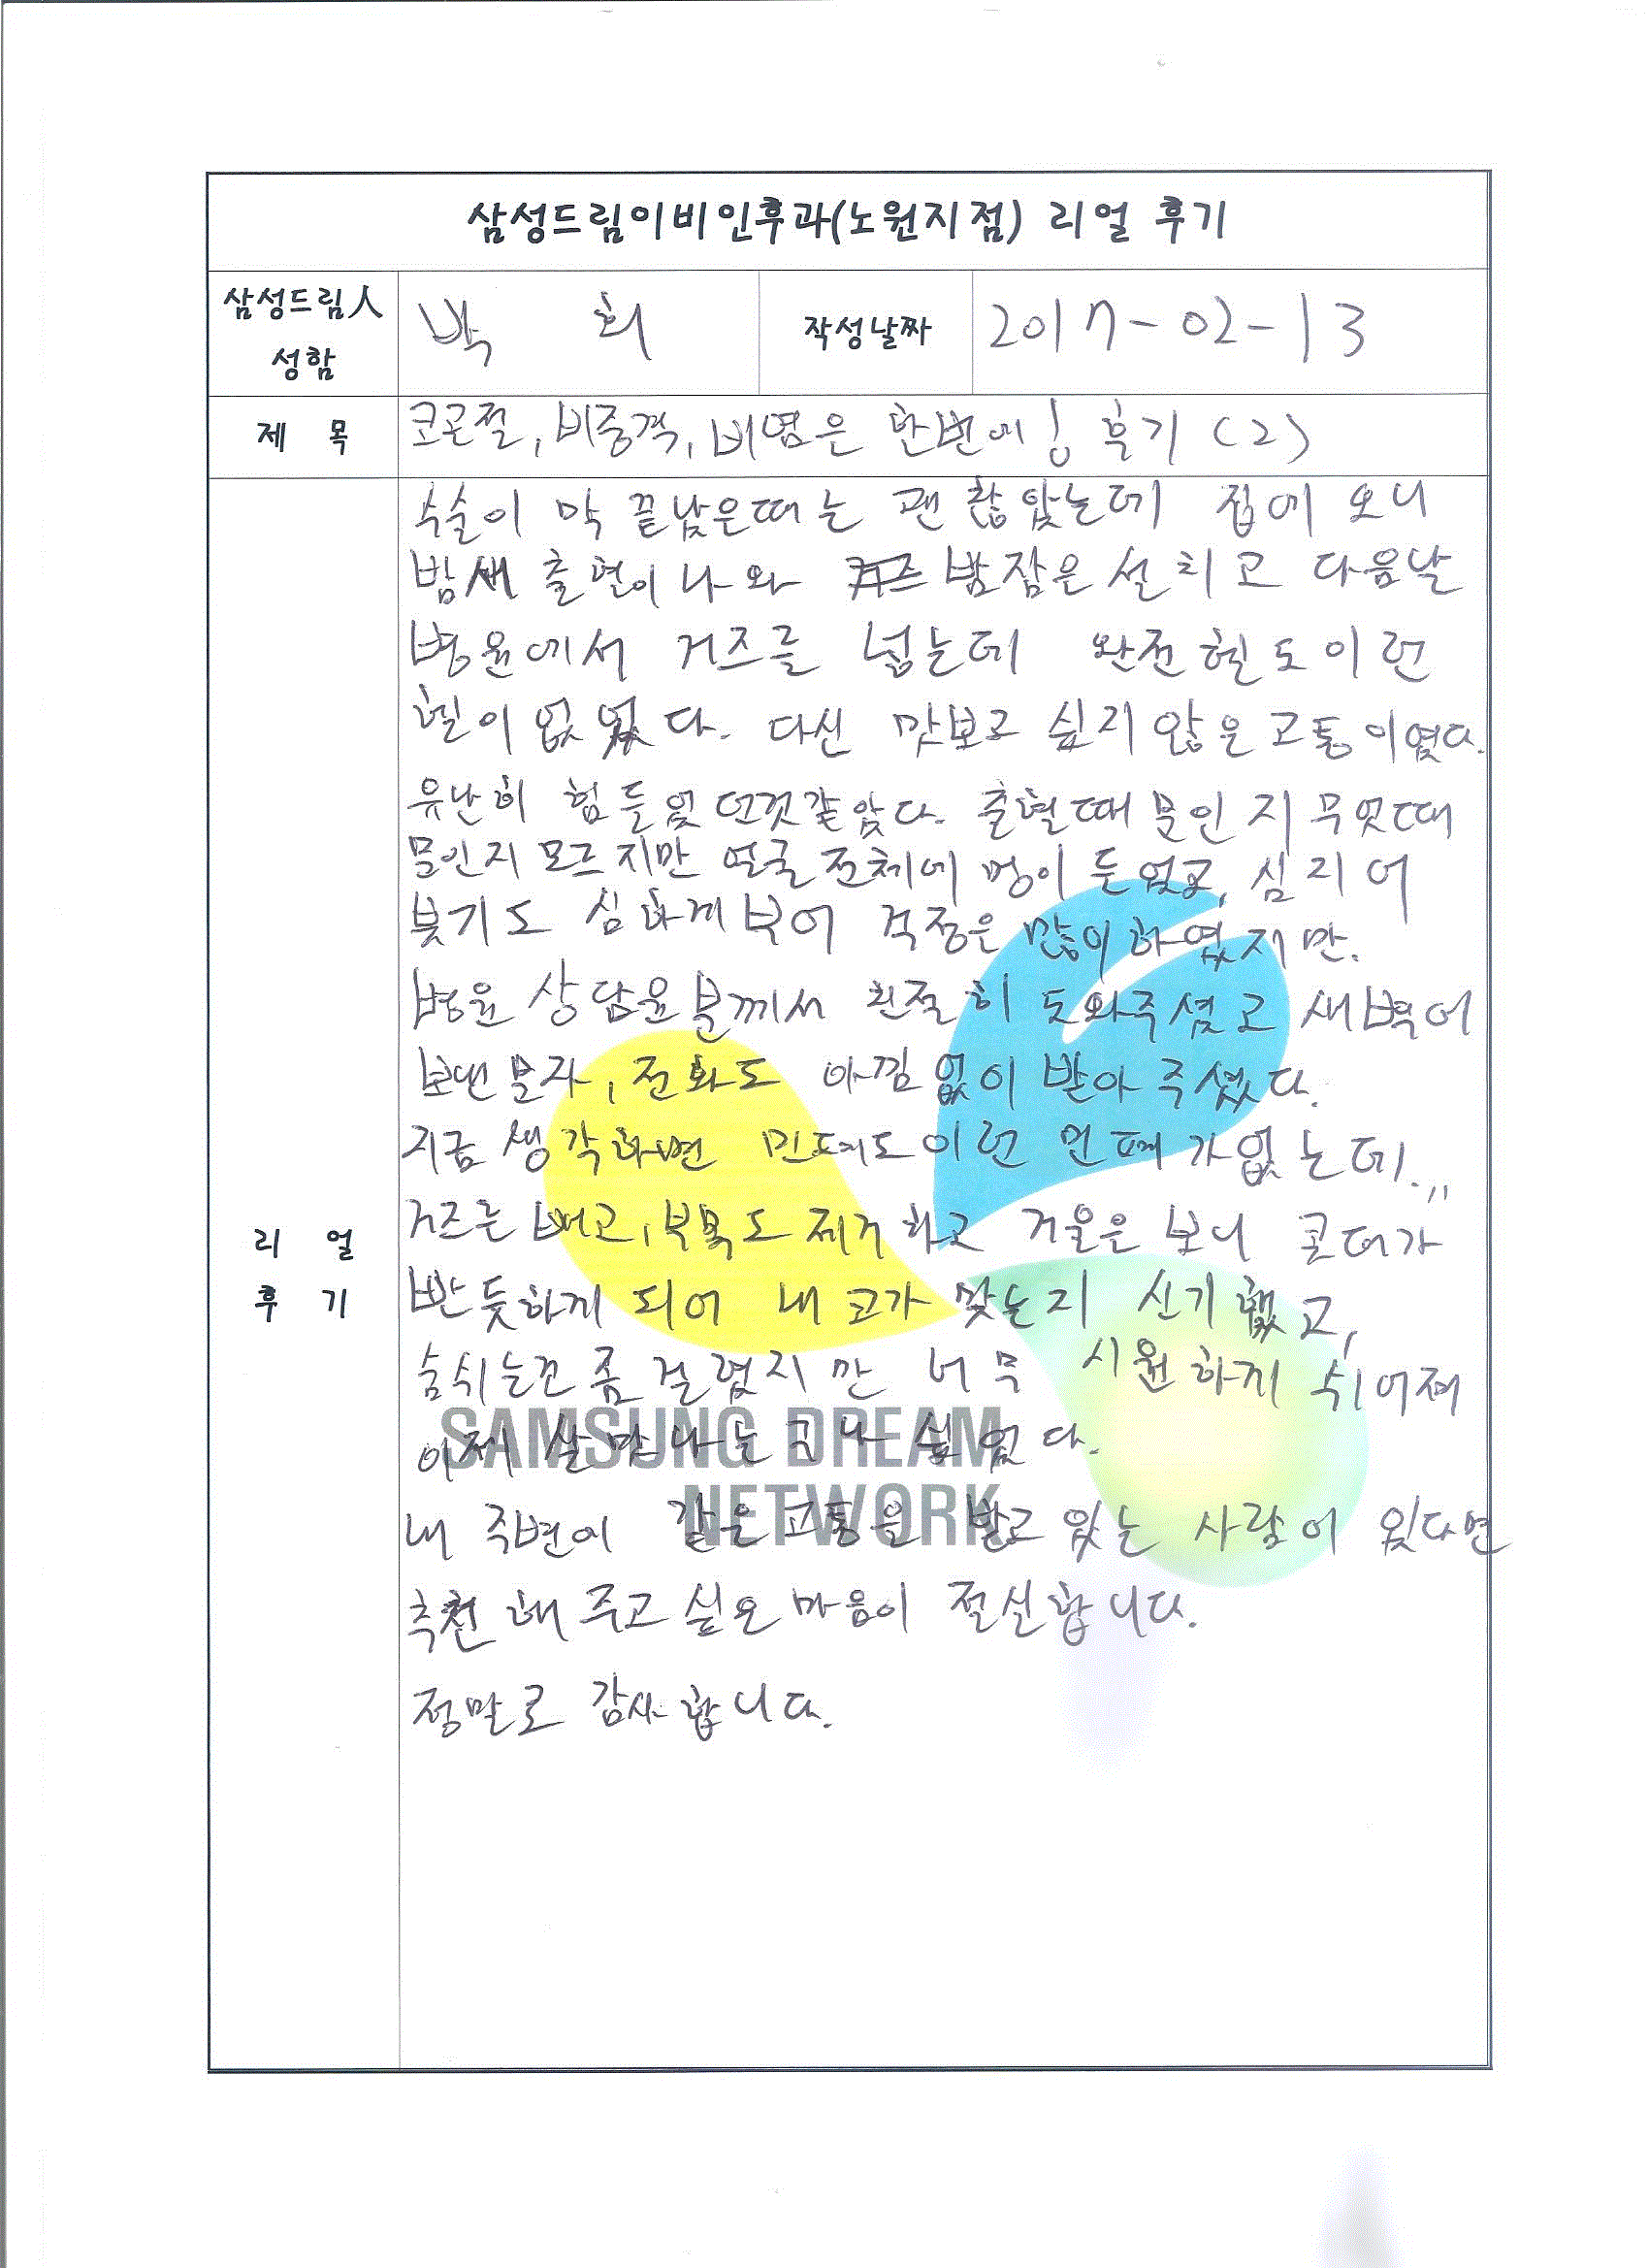 삼성드림이비인후과(노원지점) 리얼 후기
삼성드림人 성함
박 희
작성날짜
2017-02-13
제 목
코골절, 비중격, 비염은 한번에! 후기 (2)
리 얼 후 기
수술이 막 끝났은때는 괜찮았는데 집에 오니
밤새 출혈이 나와 밤잠은 설치고 다음날
병원에서 거즈를 넣는데 완전헬도이런
헬이 없었다. 다신 맛보고 싶지않은고통이였다.
유난히 힘들었던것같았다. 출혈때문인지 무엇때
문인지 모르지만 얼굴전체에 멍이 들었고, 심지어
붓기도 심하게부어 걱정은 많이하였지만.
병원 상담원분께서 친절히 도와주셨고 새벽에
보낸문자, 전화도 아낌없이 받아주셨다.
지금 생각하면 민폐도이런 민폐가없는데..,,
거즈를 빼고, 부목도 제거하고 거울은 보니 콧대가
반듯하게 되어 내코가 맞는지 신기했고,
숨쉬는건좀걸렸지만 너무 시원하게 쉬어져
이제 살맛나는구나 싶었다.
내 주변에 같은고통을 받고있는 사람이 있다면
추천해주고싶은마음이 절실합니다.
정말로 감사합니다.
SAMSUNG DREAM
NETWORK